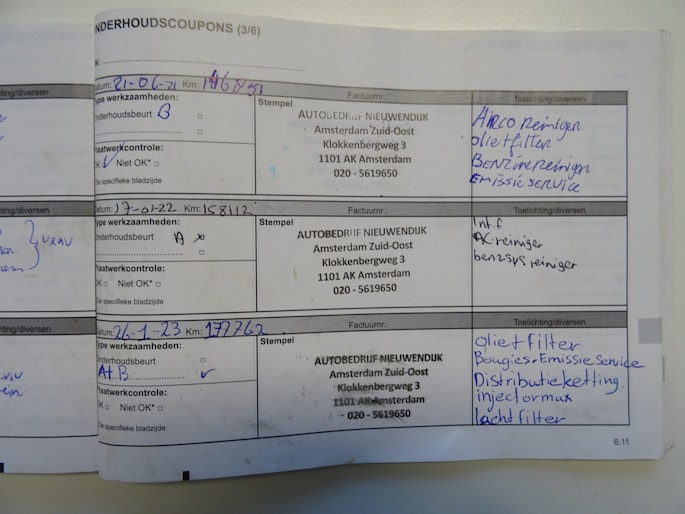 NDERHOUDSCOUPONS (3/6)
N:
Datum: 21-06-21 Km:
Factuurnr.:
Toelichting/diversen
Type werkzaamheden:
Onderhoudsbeurt B
Plaatwerkcontrole:
OK Niet OK*
Zie specifieke bladzijde
Stempel
AUTOBEDRIJF NIEUWENDIJK
Amsterdam Zuid-Oost
Klokkenbergweg 3
1101 AK Amsterdam
020 - 5619650
Airco Reinigen
olietfilter
Benzinereinigen
Emissie service
Datum: 17-01-22 Km: 158112
Factuurnr.:
Toelichting/diversen
Type werkzaamheden:
Onderhoudsbeurt A x
Plaatwerkcontrole:
OK Niet OK*
Zie specifieke bladzijde
Stempel
AUTOBEDRIJF NIEUWENDIJK
Amsterdam Zuid-Oost
Klokkenbergweg 3
1101 AK Amsterdam
020 - 5619650
Int.f
AC-reiniger
benzsys reiniger
Datum: 26-1-23 Km: 177762
Factuurnr.:
Toelichting/diversen
Type werkzaamheden:
Onderhoudsbeurt
A+B
Plaatwerkcontrole:
OK Niet OK*
Zie specifieke bladzijde
Stempel
AUTOBEDRIJF NIEUWENDIJK
Amsterdam Zuid-Oost
Klokkenbergweg 3
1101 AK Amsterdam
020 - 5619650
olietfilter
Bougies + Emissie Service
Distributieketting
injectormax
luchtfilter
6.11